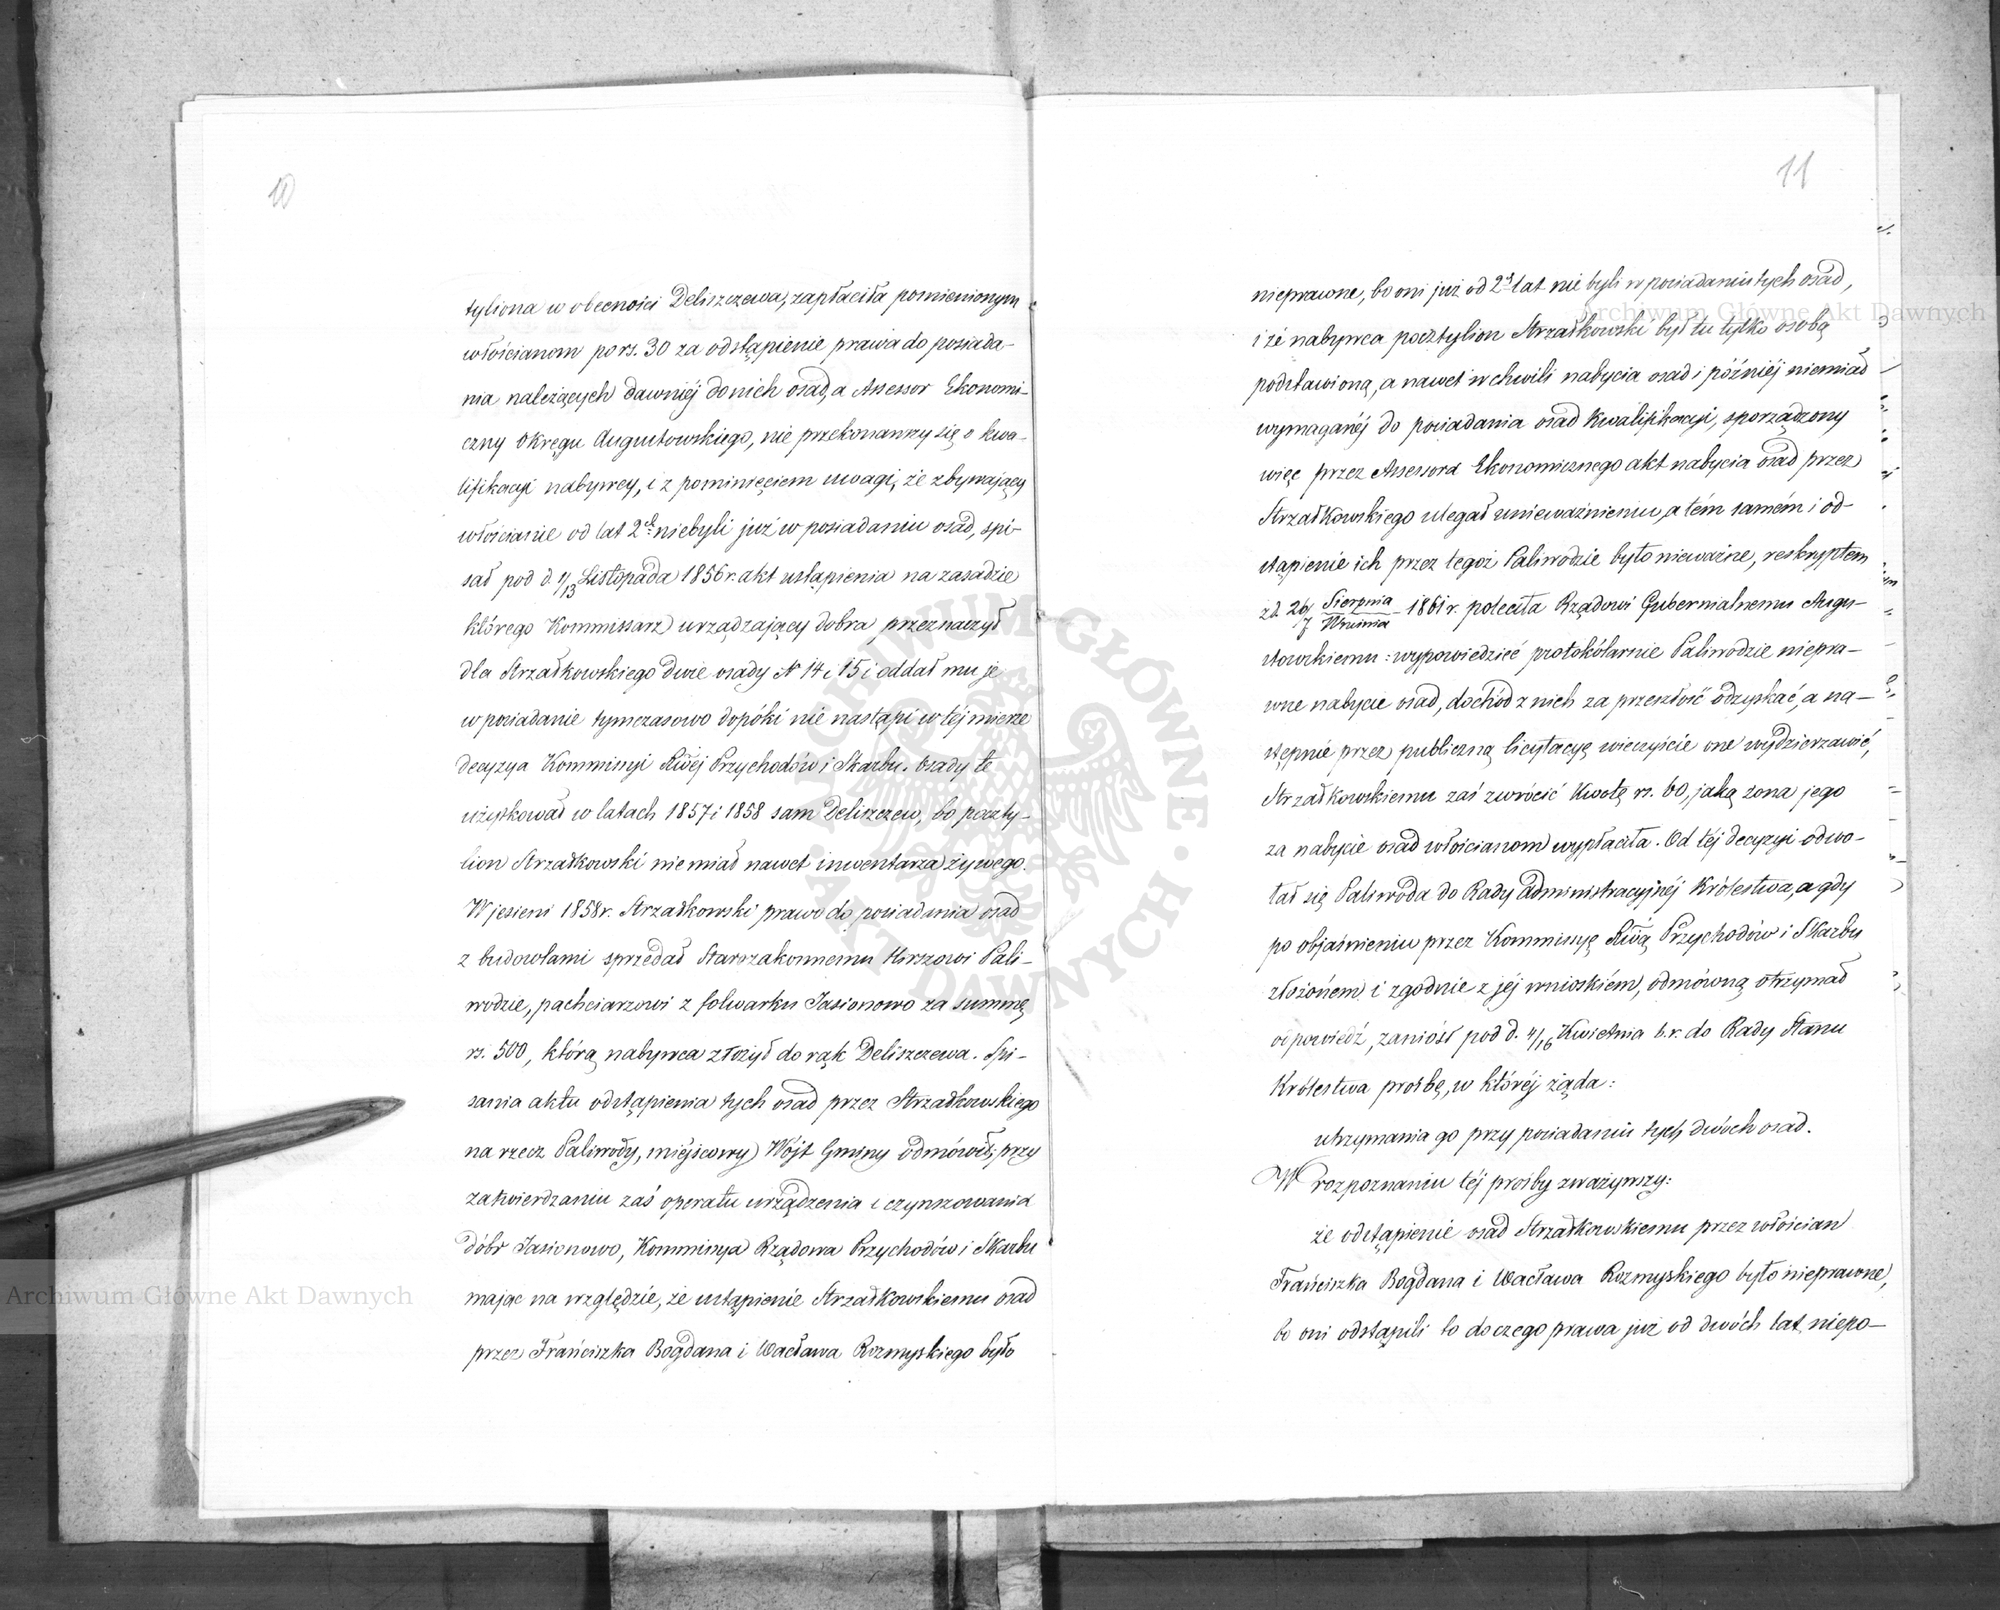 10
tyliona w obecności Deliszczewa, zapłaciła pomienionym
włościanom po rs. 30 za odstąpienie prawa do posiada-
nia należących dawniéj do nich osad, a Assessor Ekonomi-
czny Okręgu Augustowskiego, nie przekonawszy się o kwa-
lifikacyi nabywcy, i z pominięciem uwagi, że zbywający
włościanie od lat 2ch niebyli już w posiadaniu osad, spi-
sał pod d. 1/13 Listopada 1856 r. akt ustąpienia na zasadzie
którego Kommissarz urządzający dobra przeznaczył
dla Strzałkowskiego dwie osady N 14 i 15 i oddał mu je
w posiadanie tymczasowo dopóki nie nastąpi w téj mierze
decyzya Kommissyi Rwéj Przychodów i Skarbu. Osady te
użytkował w latach 1857 i 1858 sam Deliszczew, bo poczty-
lion Strzałkowski nie miał nawet inwentarza żywego.
W jesieni 1858 r. Strzałkowski prawo do posiadania osad
z budowlami sprzedał Starozakonnemu Herszowi Pali-
wodzie, pachciarzowi z folwarku Jasionowo za summę
rs. 500, którą nabywca złożył do rąk Deliszczewa. Spi-
sania aktu odstąpienia tych osad przez Strzałkowskiego
na rzecz Paliwody, miéjscowy Wójt Gminy odmówił; przy
zatwierdzaniu zaś operatu urządzenia i czynszowania
dóbr Jasionowo, Kommissya Rządowa Przychodów i Skarbu
mając na względzie, że ustąpienie Strzałkowskiemu osad
przez Frańciszka Bogdana i Wacława Rozmyskiego było
11
nieprawne, bo oni już od 2ch lat nie byli w posiadaniu tych osad,
i że nabywca pocztylion Strzałkowski był tu tylko osobą
podstawioną, a nawet w chwili nabycia osad i późniéj niemiał
wymaganéj do posiadania osad kwalifikacyi, sporządzony
więc przez Assessora Ekonomicznego akt nabycia osad przez
Strzałkowskiego ulegał unieważnieniu, a tém samém i od-
stąpienie ich przez tegoż Paliwodzie było nieważne, reskryptem
z d. 26/7 Sierpnia/Września 1861 r. poleciła Rządowi Gubernialnemu Augu-
stowskiemu: wypowiedzieć protokólarnie Paliwodzie niepra-
wne nabycie osad, dochód z nich za przeszłość odzyskać, a na-
stępnie przez publiczną licytacyę wieczyście one wydzierżawić,
Strzałkowskiemu zaś zwrócić kwotę rs. 60, jaką żona jego
za nabycie osad włościanom wypłaciła. Od téj decyzyi odwo-
łał się Paliwoda do Rady Administracyjnéj Królestwa, a gdy
po objaśnieniu przez Kommissyę Rwą Przychodów i Skarbu
złożoném i zgodnie z jéj wnioskiém, odmówną otrzymał
odpowiedź, zaniósł pod d. 4/16 Kwietnia b.r. do Rady Stanu
Królestwa prośbę, w któréj żąda:
utrzymania go przy posiadaniu tych dwóch osad.
W rozpoznaniu téj prośby zważywszy:
że odstąpienie osad Strzałkowskiemu przez włościan
Frańciszka Bogdana i Wacława Rozmyskiego było nieprawne,
bo oni odstąpili to do czego prawa już od dwóch lat niepo-
Archiwum Główne Akt Dawnych
Archiwum Główne Akt Dawnych
ARCHIWUM GŁÓWNE · AKT DAWNYCH ·